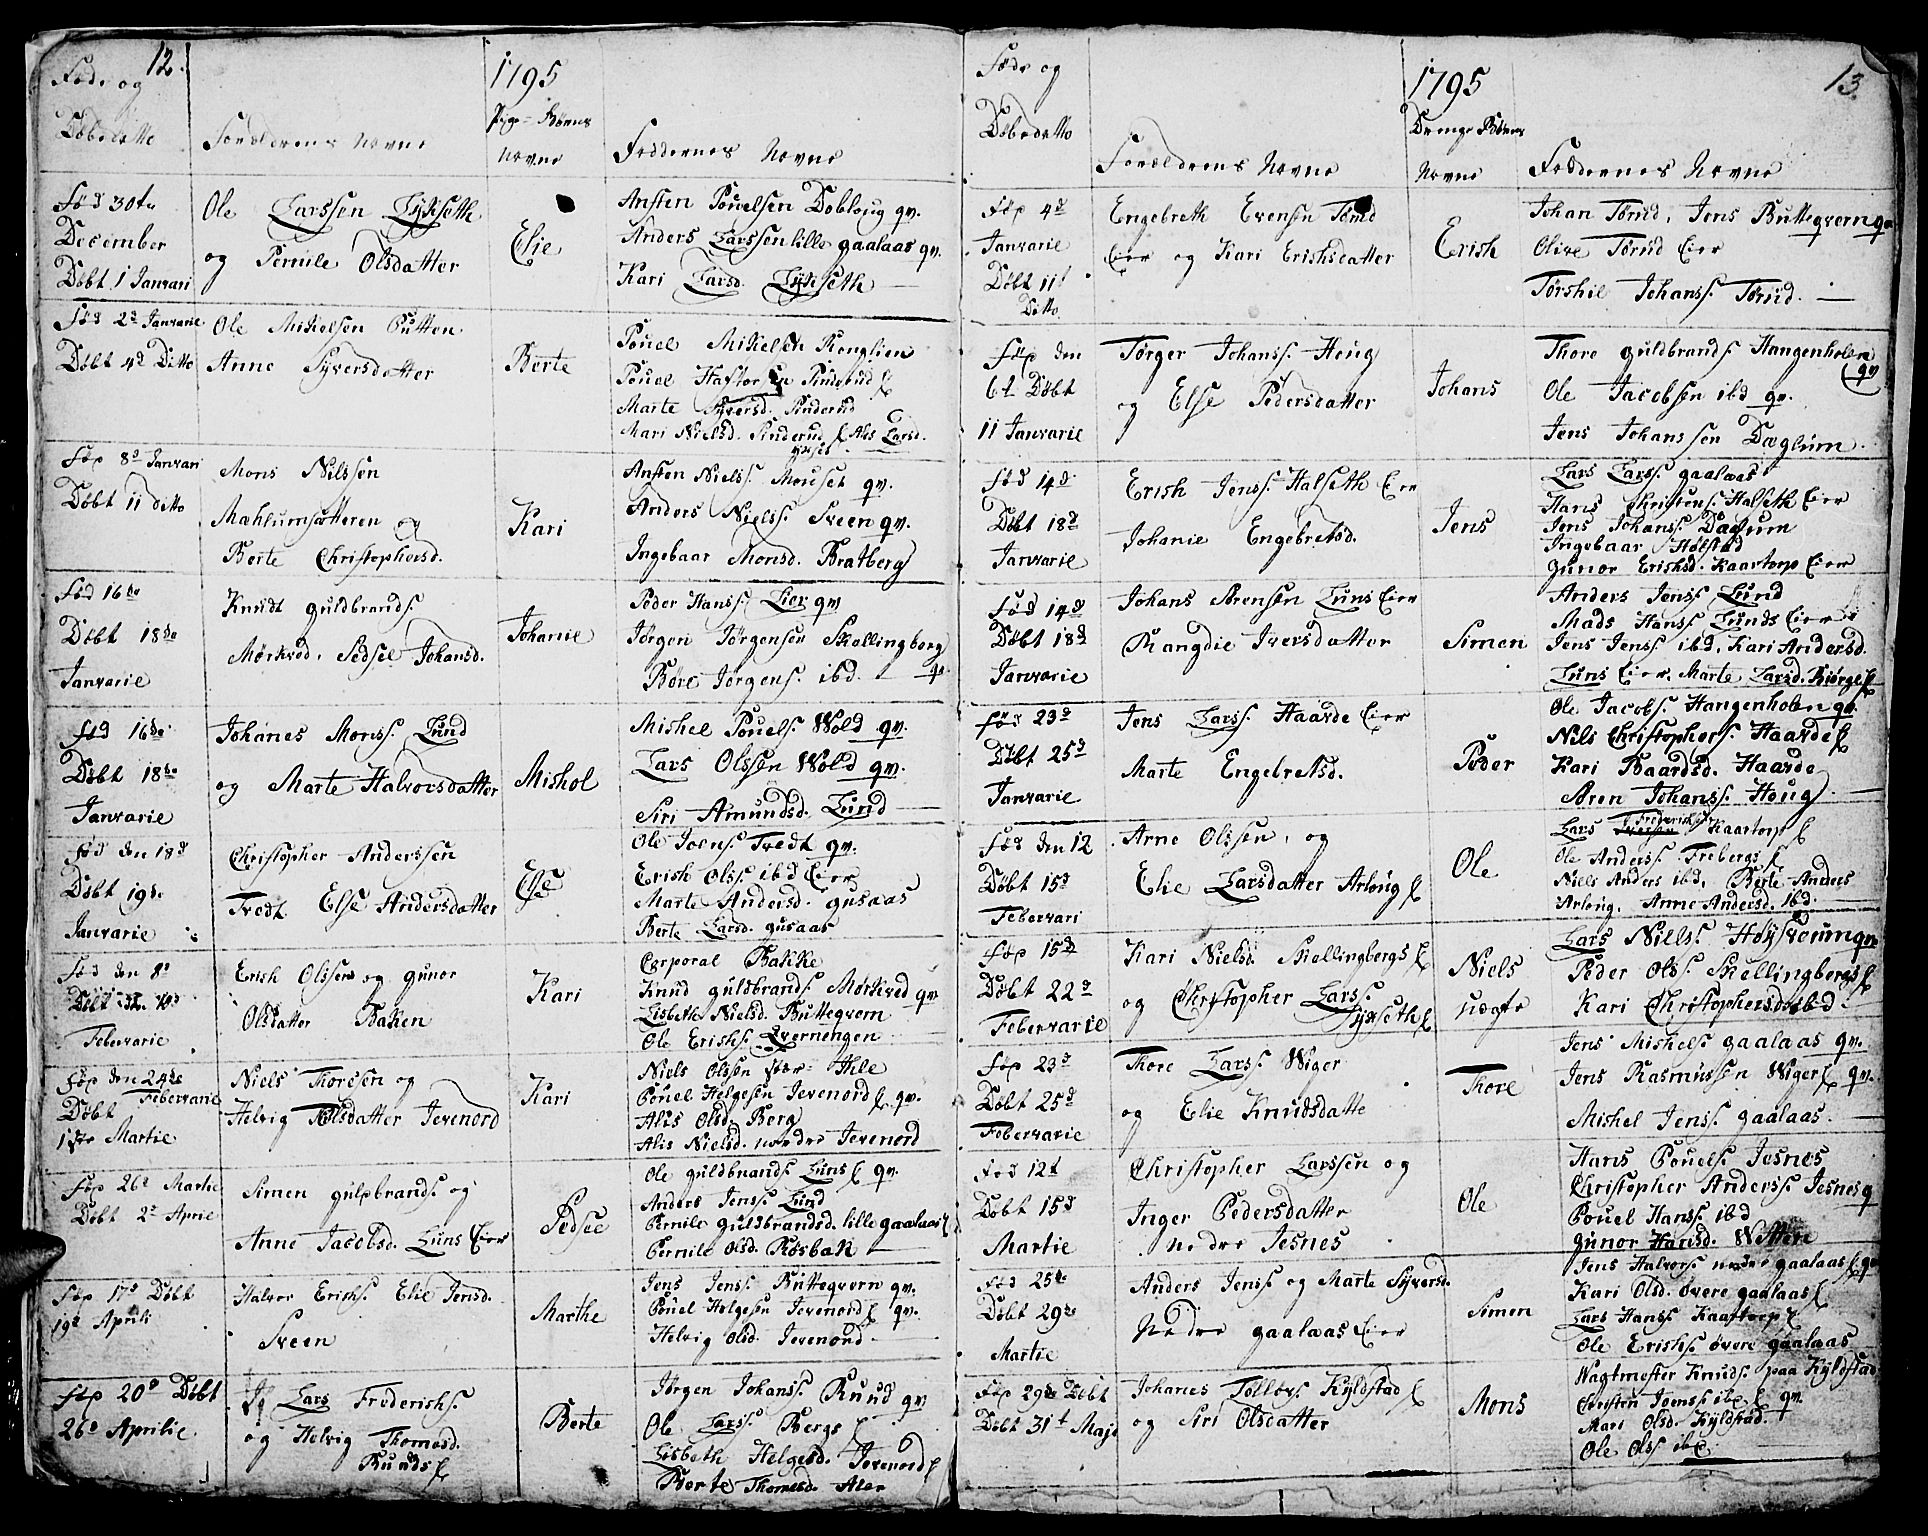 12.
Føds og
Døbedatto
Forældrens Navne
1795
Pige-Børns
Navne
Faddernes Navne
Fød 30te
December
Døbt 1 Janvari
Ole Larssen Lykseth
og Pernile Olsdatter
Elie
Ansten Pouelsen Dobloug gv.
Anders Larssen lille gaalaas gv.
Kari Larsd. Lykseth
Fød 2d Janvarie
Døbt 4d Ditto
Ole Mikelsen Putten
Anne Syversdatter
Berte
Pouel Mikelsen Renglien
Pouel
Marte Syversd. Pinderud
Mari Nielsd. Pinderud
Fød 8d Janvari
Døbt 11 ditto
Mons Nilssen
Mæhlumsætteren og
Berte Christophersd.
Kari
Ansten Nielss. Mouset gv.
Anders Nielss. Sveen gv.
Ingebaar Monsd. Bratberg
Fød 16de
Døbt 18de
Janvarie
Knudt guldbrands.
Mørkved, Sedsel Johansd.
Johanie
Peder Hanss. Lier gv
Jørgen Jørgensen Skellingberg
Børe Jørgens. ibd.
Fød 16de
Døbt 18de
Janvarie
Johanes Monss. Lund
og Marte Halvorsdatter
Mishel
Mishel Pouels. Wold gv.
Lars Olssen Wold gv.
Siri Amundsd. Lund
Fød den 18d
Døbt 19de
Janvarie
Christopher Anderssen
Tredt Else Andersdatter
Else
Ole Joens. Tredt gv.
Erish Olss. ibd Eier
Marte Andersd. gusaas
Berte Larsd. gusaas
Fød den 8d
Døbt
Febervarie
Erish Olssen og gunor
Olsdatter Baken
Kari
Corporal Bakke
Knud guldbrands. Mørkved gv
Lisbeth Nielsd. Buttegvern
Ole Erishs. Qvernengen
Fød den 24de
Febervarie
Døbt
1ste Martie
Niels Thoresen og
Helvig Olsdatter Jevenord
Kari
Niels Olssen
Pouel Helgesen Jevenord gv.
Alis Olsd. Berg
Alis Nielsd. nordre Jevenord
Fød 26d Martie
Døbt 2d Aprie
Simen gulbrands. og
Anne Jacobsd. Luns Eier
Sedsee
Ole guldbrands. Luns gv.
Anders Jenss. Lund
Pernile guldbrandsd. lille gaalaas
Pernile Olsd. Røsbak
Fød 17d Døbt
19d Aprili
Halvor Erishs. Elie Jensd.
Sveen
Marthe
Jens Jenss. Buttegvern gv.
Pouel Helgesen Jevenord gv.
Helvig Olsd. Jevenord
Fød 20d Døbt
26d Aprilie
Lars Frederichs.
og Helvig Thomesd.
Ruuds
Berte
Jørgen Johanss. Ruud gv
Ole Larss. Bergs
Lisbeth Helgesd. Jevenord
Berte Thomesd. Aler
13.
Føds og
Døbedatto
Forældrens Navne
1795
Drenge Børns
Navne
Faddernes Navne
Fød 4d
Janvarie
Døbt 11t
Ditto
Engebreth Evensen Tørud
Eier og Kari Erishsdatter
Erish
Johan Tørud, Jens Buttegvern gv
Olive Tørud Eier
Tørshil Johanss. Tørud.
Fød den
6t Døbt
11 Janvarie
Tørger Johanss. Houg
og Else Pedersdatter
Johans
Thore guldbrands. Hangenholen
gv
Ole Jacobsen ibd gv.
Jens Johanssen Dæglum.
Fød 14d
Døbt 18d
Janvarie
Erish Jenss. Halseth Eier
Johanie Engebretsd.
Jens
Lars Larss. gaalaas
Hans Christens. Halseth Eier
Jens Johanss. Daglum
Ingebaar Hølstad
gunor Erishsd. Kaartorp Eier
Fød 14d
Døbt 18d
Janvarie
Johans Sørensen Luns Eier
Rangdie Iversdatter
Simen
Anders Jenss. Lund
Mads Hanss. Lunds Eier
Jens Jenss. ibd, Kari Andersd.
Luns Eier, Marte Larsd. Biørge
Fød 23d
Døbt 25d
Janvarie
Jens Larss. Haarde Eier
Marte Engelretsd.
Peder
Ole Jacobs. Hangenholen gv.
Nils Christophers. Haarde
Kari Baardsd. Haarde
Sven Johanss. Houg
Fød den 12
Døbt 15d
Febervari
Arne Olssen, og
Elie Larsdatter Arloug
Ole
Lars Frederichs. Kaartorp
Ole Anderss. Frebergs
Niels Anders ibd, Berte Anders
Arloug, Anne Andersd. ibd.
Fød 15d
Døbt 22d
Febervarie
Kari Nielsd. Skellingbergs
og Christopher Larss.
Lykseth
Niels
uægte
Lars Nielss. Høysveum gv
Peder Olss. Skellingbergs
Kari Christophersd. ibd
Fød 23d
Døbt 25d
Febervarie
Thore Larss. Wiger
og Elie Knudsdatte
Thore
Jens Mishels. gaalaas gv.
Jens Rasmussen Wiger gv.
Mishel Jenss. gaalaas.
Fød 12t
Døbt 15d
Martie
Christopher Larssen og
Inger Pedersdatter
nedre Jesnes
Ole
Hans Pouels. Jesnes
Christopher Anderss. Jesnes g
Pouel Hanss. ibd
gunor Hansd. Wetten
Fød 25de
Døbt 29de
Martie
Anders Jenss. og Marte Syversd.
Nedre gaalaas Eier
Simen
Jens Halvors. nedre gaalaas gv
Kari Olsd. øvere gaalaas
Lars Hanss. Kaartorp
Ole Erishs. øvere gaalaas
Fød 29de Døbt
Døbt 31t Maji
Johanes Tollefs. Kyldstad
og Siri Olsdatter
Mons
Wagtmester Knuds. paa Kyldstad
Christen Joens. ibd gv.
Mari Olsd. Kyldstad.
Ole Olss. ibd